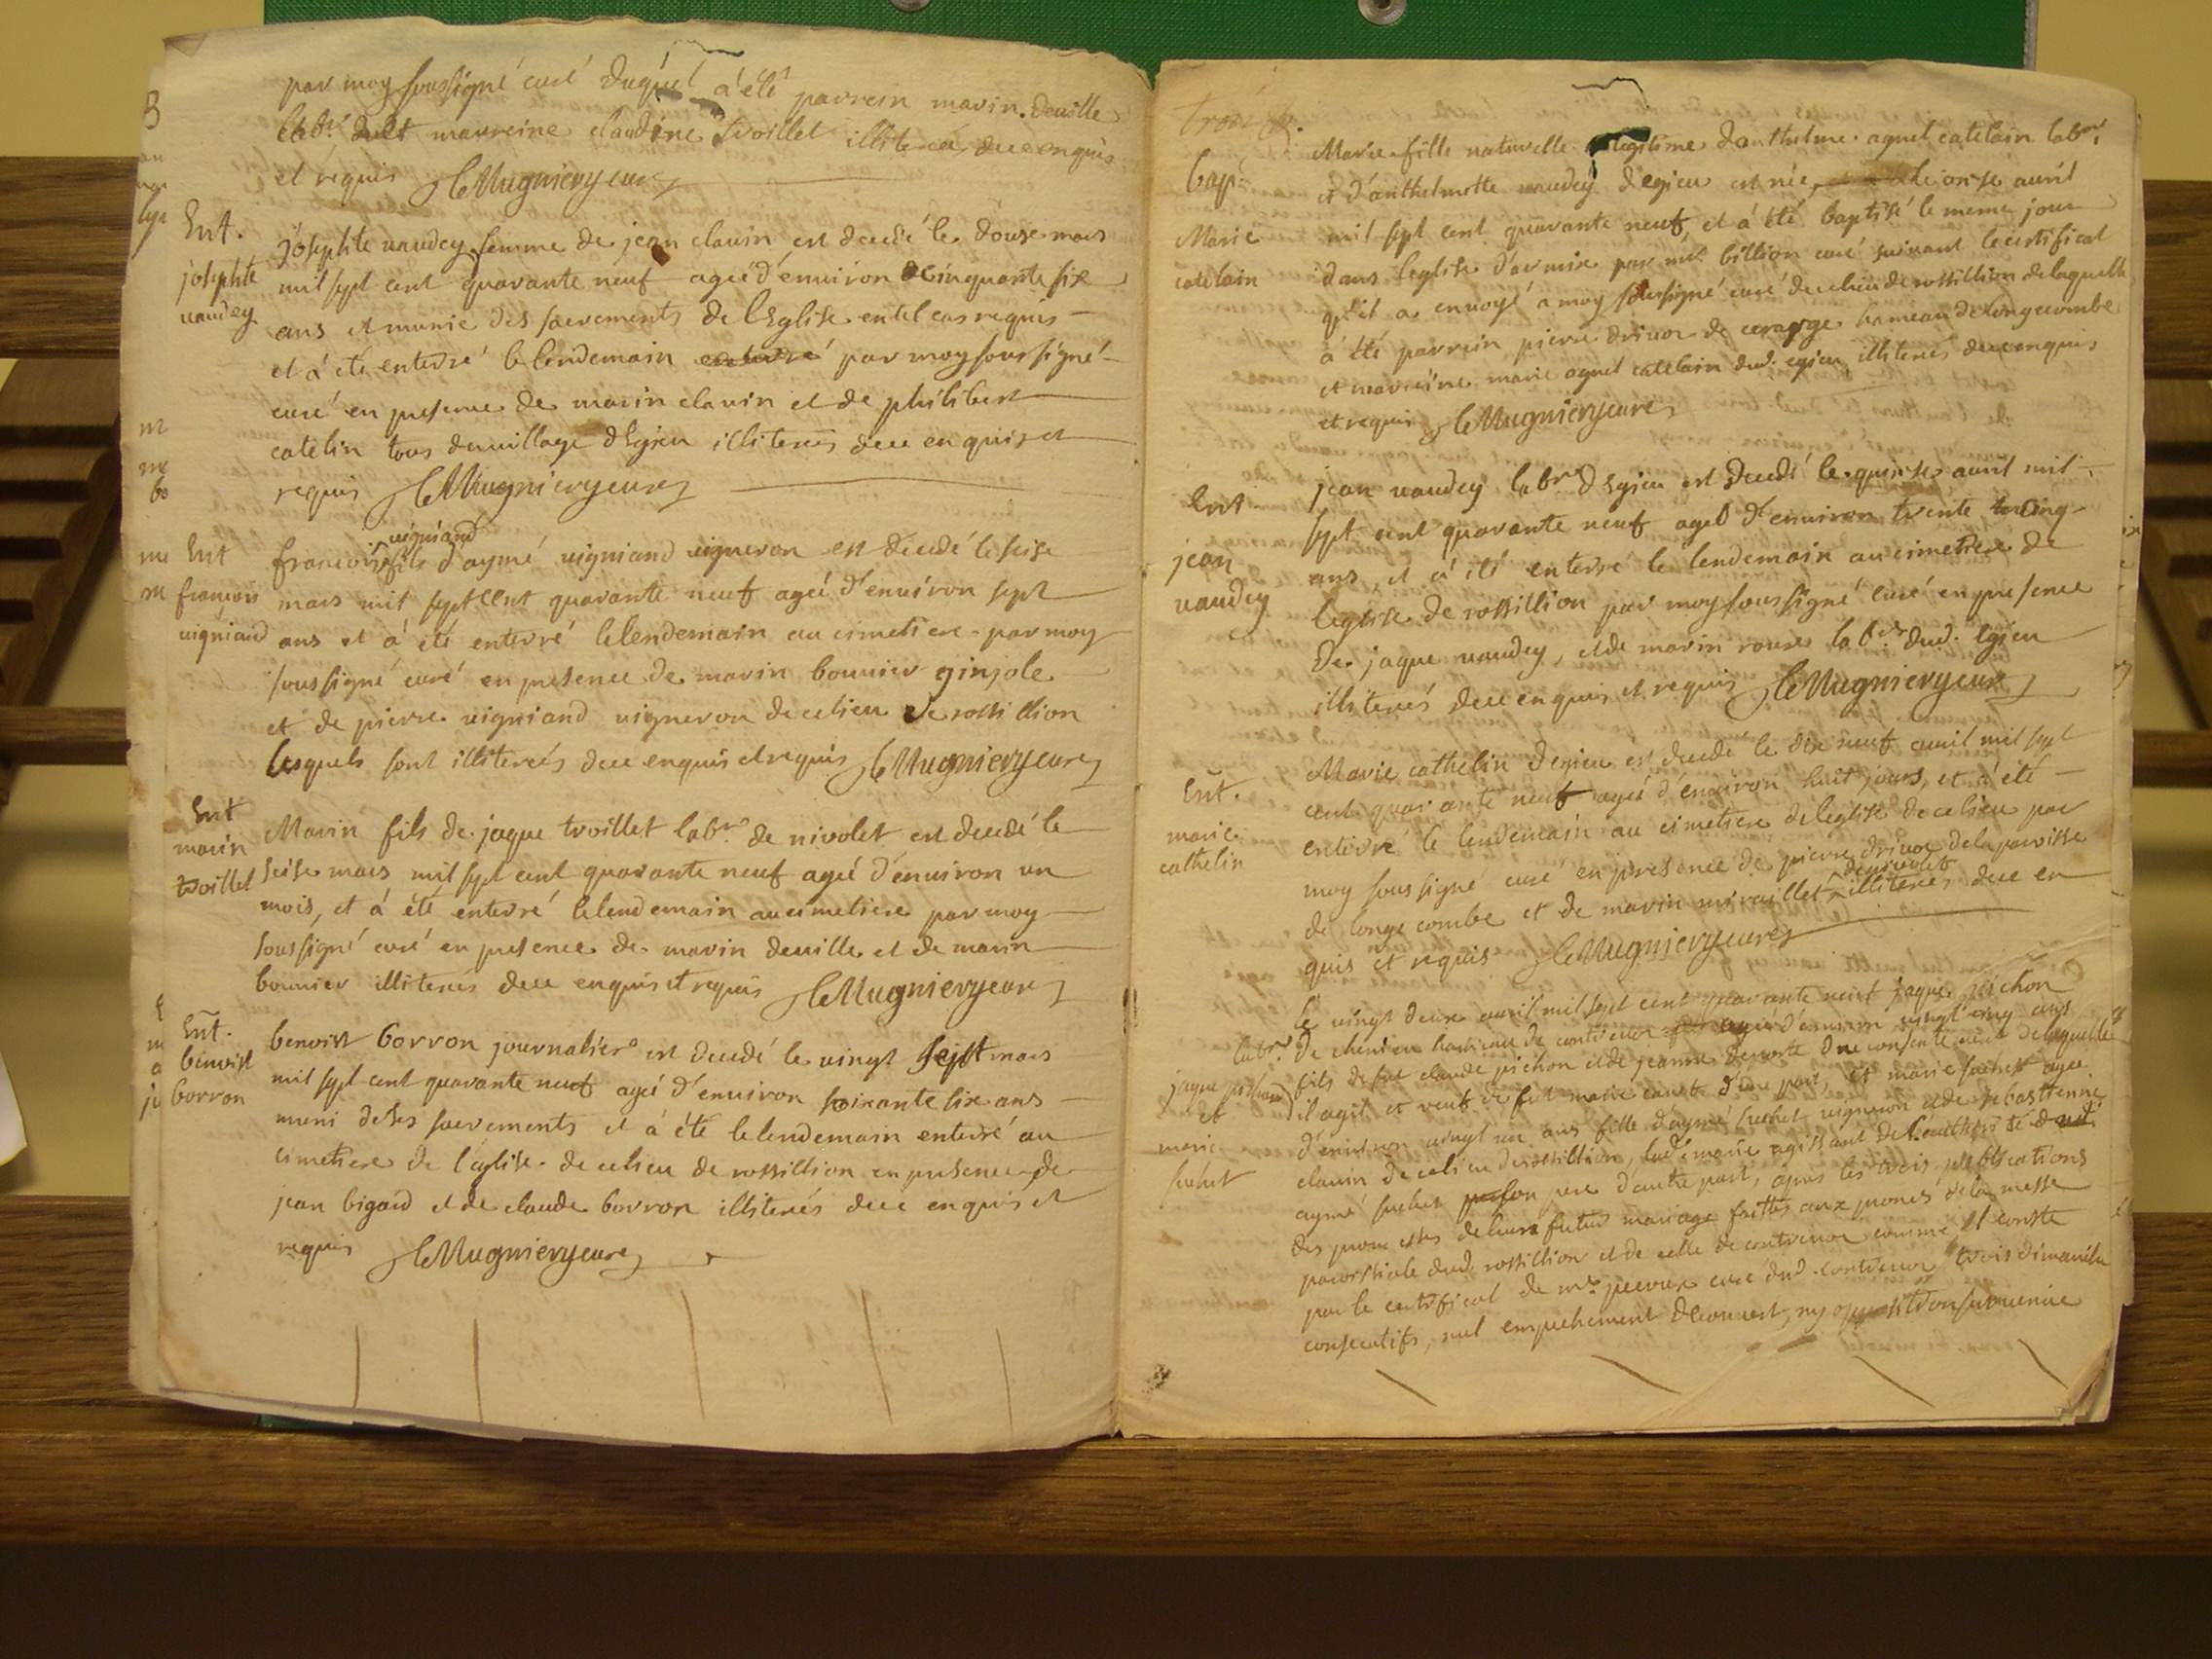 par moy soussigné curé duquel a été parrein marin deuille
labr. dud et marreine claudine troillet illiterés de ce enquis
et requis Le Mugniery curé
Ent.
josephte
vaudey
josephte vaudey femme de jean clauin est decedé le douze mars
mil sept cent quarante neuf agée d'enuiron cinquante six
ans et munie des sacrements de l'Eglise en tel cas requis
et a été enterré le lendemain par moy soussigné
curé en presence de marin clauin et de philibert
catelin tous du village d'Egieu illiterés de ce enquis et
requis Le Mugniery curé
Ent
françois
vigniand
vigniand
françois fils d'aymé vigniand vigneron est decedé le seise
mars mil sept cent quarante neuf agé d'enuiron sept
ans et a été enterré le lendemain au cimetiere par moy
soussigné curé en presence de marin bonnier ginjole
et de pierre vigniand vigneron de ce lieu de rossillion
lesquels sont illiterés de ce enquis et requis Le Mugniery curé
Ent
marin
troillet
Marin fils de jaque troillet labr. de nivolet est decedé le
seise mars mil sept cent quarante neuf agé d'enuiron un
mois, et a été enterré le lendemain au cimetiere par moy
soussigné curé en presence de marin deuille et de marin
bonnier illiterés de ce enquis et requis Le Mugniery curé
Ent.
benoist
borron
benoist borron journalier est decedé le vingt sept mars
mil sept cent quarante neuf agé d'enuiron soixante six ans
muni de ses sacrements et a été le lendemain enterré au
cimetiere de l'église de ce lieu de rossillion en presence de
jean bigard et de claude borron illiterés de ce enquis et
requis Le Mugniery curé
Bap.
Marie
catelain
Marie fille naturelle legitime d'anthelme aguel catelain labr.
et d'anthelmette vaudey d'egieu est née, le onse auril
mil sept cent quarante neuf, et a été baptisé le meme jour
dans l'eglise d'armix par mr. billion curé suiuant le certificat
qu'il a enuoyé a moy soussigné curé de ce lieu de rossillion de laquelle
a été parrein pierre driuon de hameau de longecombe
et marreine marie aguel catelain dud. egieu illiterés de ce enquis
et requis Le Mugniery curé
Ent.
jean
vaudey
jean vaudey labr. d'Egieu est decedé le quinse auril mil
sept cent quarante neuf agé d'enuiron trente cinq
ans, et a été enterré le lendemain au cimetiere de
l'eglise de rossillion par moy soussigné curé en presence
de jaque vaudey, et de marin roux labr. dud. Egieu
illiterés de ce enquis et requis Le Mugniery curé
Ent.
marie
cathelin
Marie cathelin d'egieu est decedé le dix neuf auril mil sept
cent quarante neuf agée d'enuiron huit jours, et a été
enterré le lendemain au cimetiere de l'eglise de ce lieu par
moy soussigné curé en presence de pierre driuon de la paroisse
de nivolet
de longe combe et de marin miraillet illiterés de ce en
quis et requis Le Mugniery curé
jaque pichon
et
marie
suchet
Le vingt deux auril mil sept cent quarante neuf jaque pichon
labr. de chenieu hameau de agé d'enuiron vingt cinq ans
fils de fut claude pichon et de jeanne du consentement de laquelle
il agit et veuf de fut marie d'une part, et marie suchet agée
d'enuiron vingt un ans fille d'aymé suchet vigneron et de sebastienne
clauin de ce lieu de rossillion, lad. marie agissant de l'authorité dud.
aymé suchet son pere d'autre part, apres les trois publications
des promesses de leurs futur mariage faittes aux prones de la messe
paroissiale dud. rossillion et de celle de comme il conste
par le certificat de mr. curé dud. trois dimanche
consecutifs, nul empechement decouuert, ny opposition suruenue